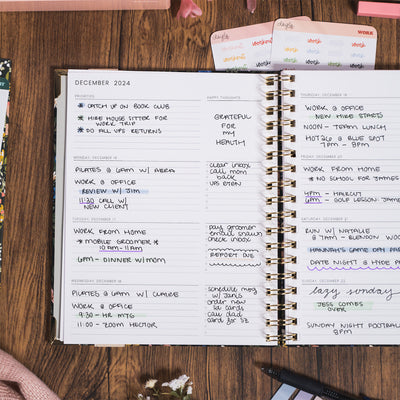 WORK
workout
DECEMBER 2024
PRIORITIES
* CATCH UP ON BOOK CLUB
* HIRE HOUSE SITTER FOR
WORK TRIP
* DO ALL UPS RETURNS
HAPPY THOUGHTS
GRATEFUL
FOR
MY
HEALTH
MONDAY, DECEMBER 16
PILATES @ 6AM W/
WORK @ OFFICE
REVIEW W/ JIM
11:30 CALL W/
NEW CLIENT
clear inbox
call mom
back
UPS
TUESDAY, DECEMBER 17
WORK FROM HOME
* MOBILE GROOMER *
10AM-11AM
6PM - DINNER W/MOM
pay groomer
email shawn
check inbox
REPORT DUE
WEDNESDAY, DECEMBER 18
PILATES @ 6AM W/ CLAIRE
WORK @ OFFICE
9:30 - HR MTG
11:00 - ZOOM HECTOR
schedule mtg
w/
order new
id cards
call dad
card for
THURSDAY, DECEMBER 19
WORK @ OFFICE
NEW HIRE STARTS
NOON - TEAM LUNCH
@ BLUE SPOT
7PM - 9PM
FRIDAY, DECEMBER 20
WORK FROM HOME
* NO SCHOOL FOR JAMES
4PM - HAIRCUT
4PM - GOLF LESSON JAMES
SATURDAY, DECEMBER 21
RUN W/ NATALIE
@ 7AM -
HANNAH'S GAME DAY
DATE NIGHT @ HYDE
SUNDAY, DECEMBER 22
lazy sunday
JESS COMES
OVER
SUNDAY NIGHT FOOTBALL
8PM